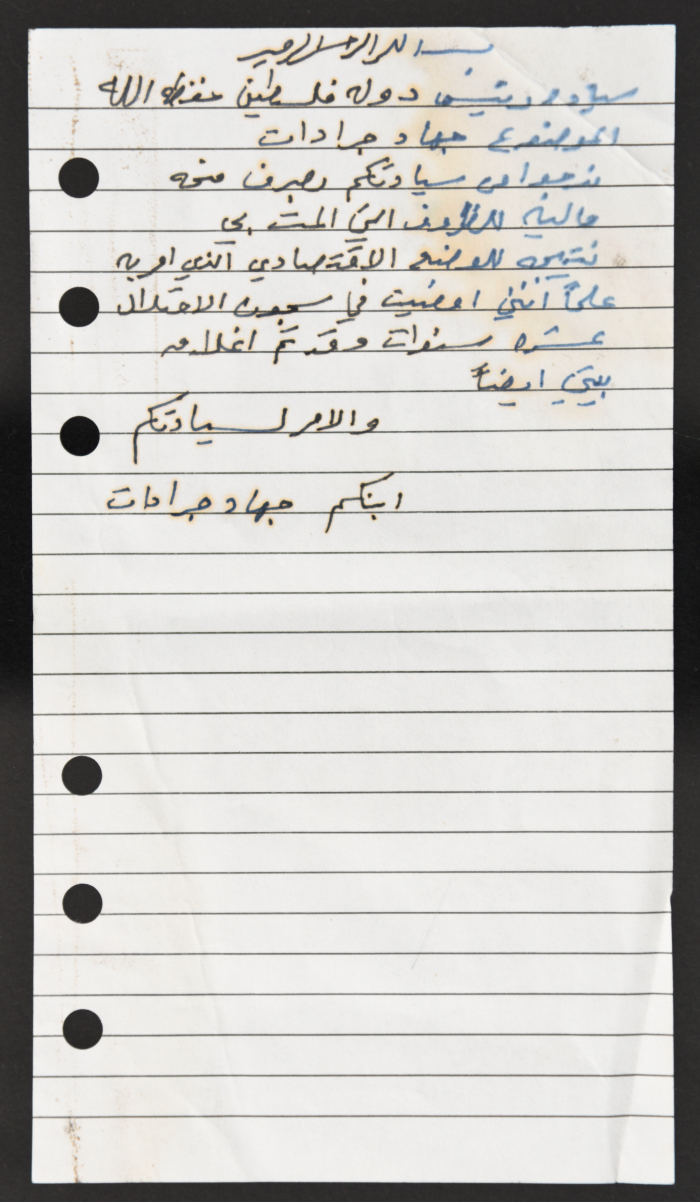 بسم الله الرحمن الرحيم
سيادة رئيس دولة فلسطين حفظه الله
الموضوع جهاد جرادات
نرجوا من سيادتكم بصرف منحه
ماليه للظروف التي المت بي
نتيجه للوضع الاقتصادي الذي امر به
علماً انني امضيت في سجون الاحتلال
عشره سنوات وقد تم اغلاق
بيتي ايضاً
والامر لسيادتكم
ابنكم جهاد جرادات